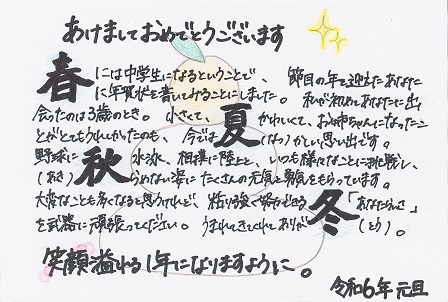 あけましておめでとうございます
春には中学生になるということで、 節目の年を迎えたあなた
に年賀状を書いてみることにしました。 私が初めてあなたに出
会ったのは3歳のとき。小さくて、かわいくて、お姉ちゃんになったこ
とがとてもうれしかったのも、今では夏(なつ)かしい思い出です。
野球に水泳、相撲に陸上と、いつも様々なことに挑戦し、
秋(あき)らめない姿にたくさんの元気と勇気をもらっています。
大変なことも多くなると思うけれど、粘り強く努力できる「あなたらしさ」
を武器に頑張ってください。 うまれてきてくれてありが冬(とう)。
笑顔溢れる1年になりますように。
令和6年 元旦